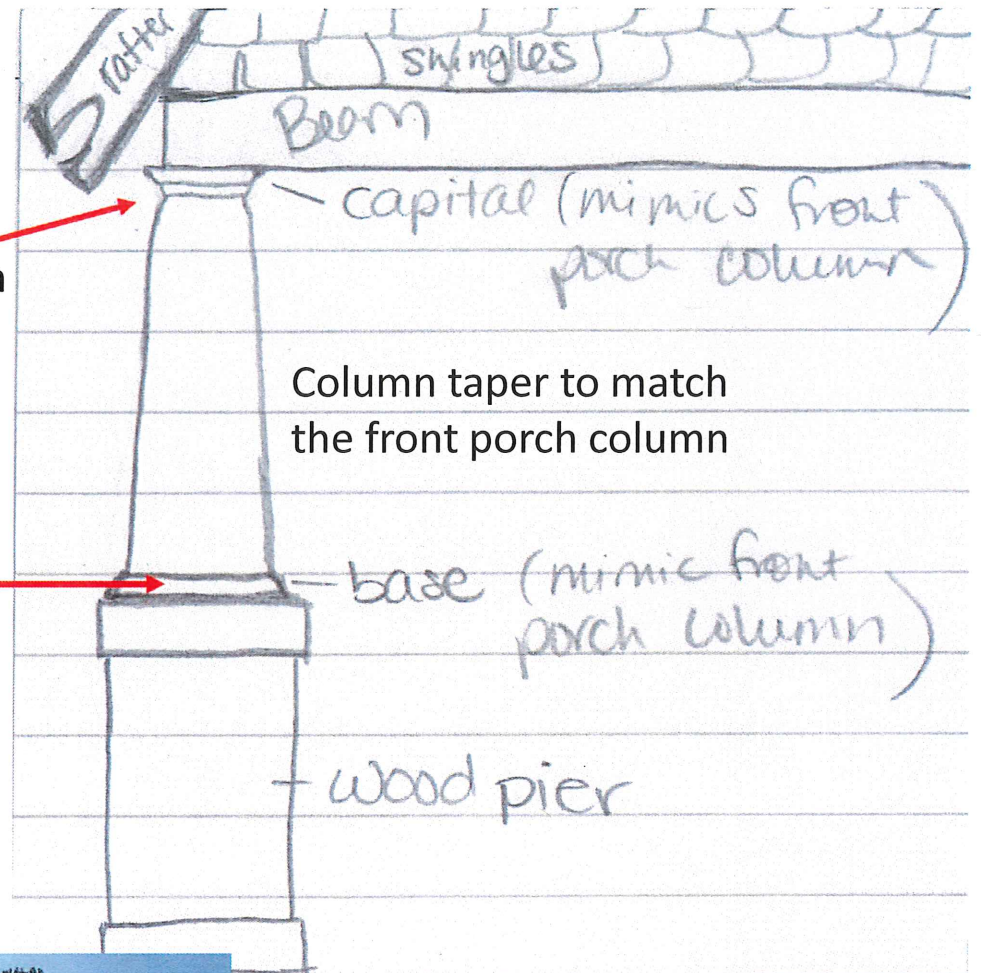 rafter
shingles
Beam
capital (mimics front
porch column)
Column taper to match
the front porch column
base (mimic front
porch column)
wood pier